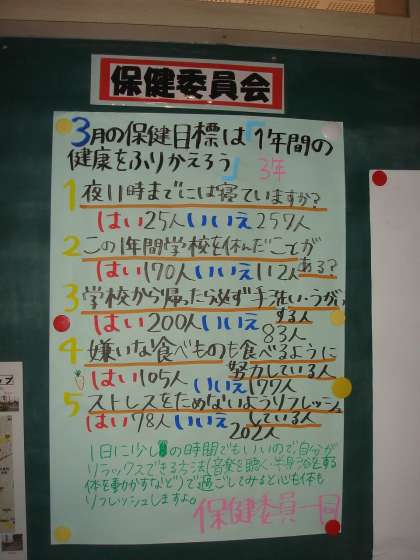 保健委員会
3月の保健目標は「1年間の
健康をふりかえろう」3年
1 夜11時までには寝ていますか?
はい25人いいえ257人
2 この1年間学校を休んだことが
ある?
はい170人いいえ112人
3 学校から帰ったら必ず手洗い・うがい
する人
はい200人いいえ
83人
4 嫌いな食べものも食べるように
努力している人
はい105人いいえ177人
5 ストレスをためないようリフレッシュ
している人
はい78人いいえ
202人
1日に少しの時間でもいいので自分が
リラックスできる方法(音楽を聴く・半身浴をする
体を動かすなど)で過ごしてみると心も体も
リフレッシュしますよ。
保健委員一同